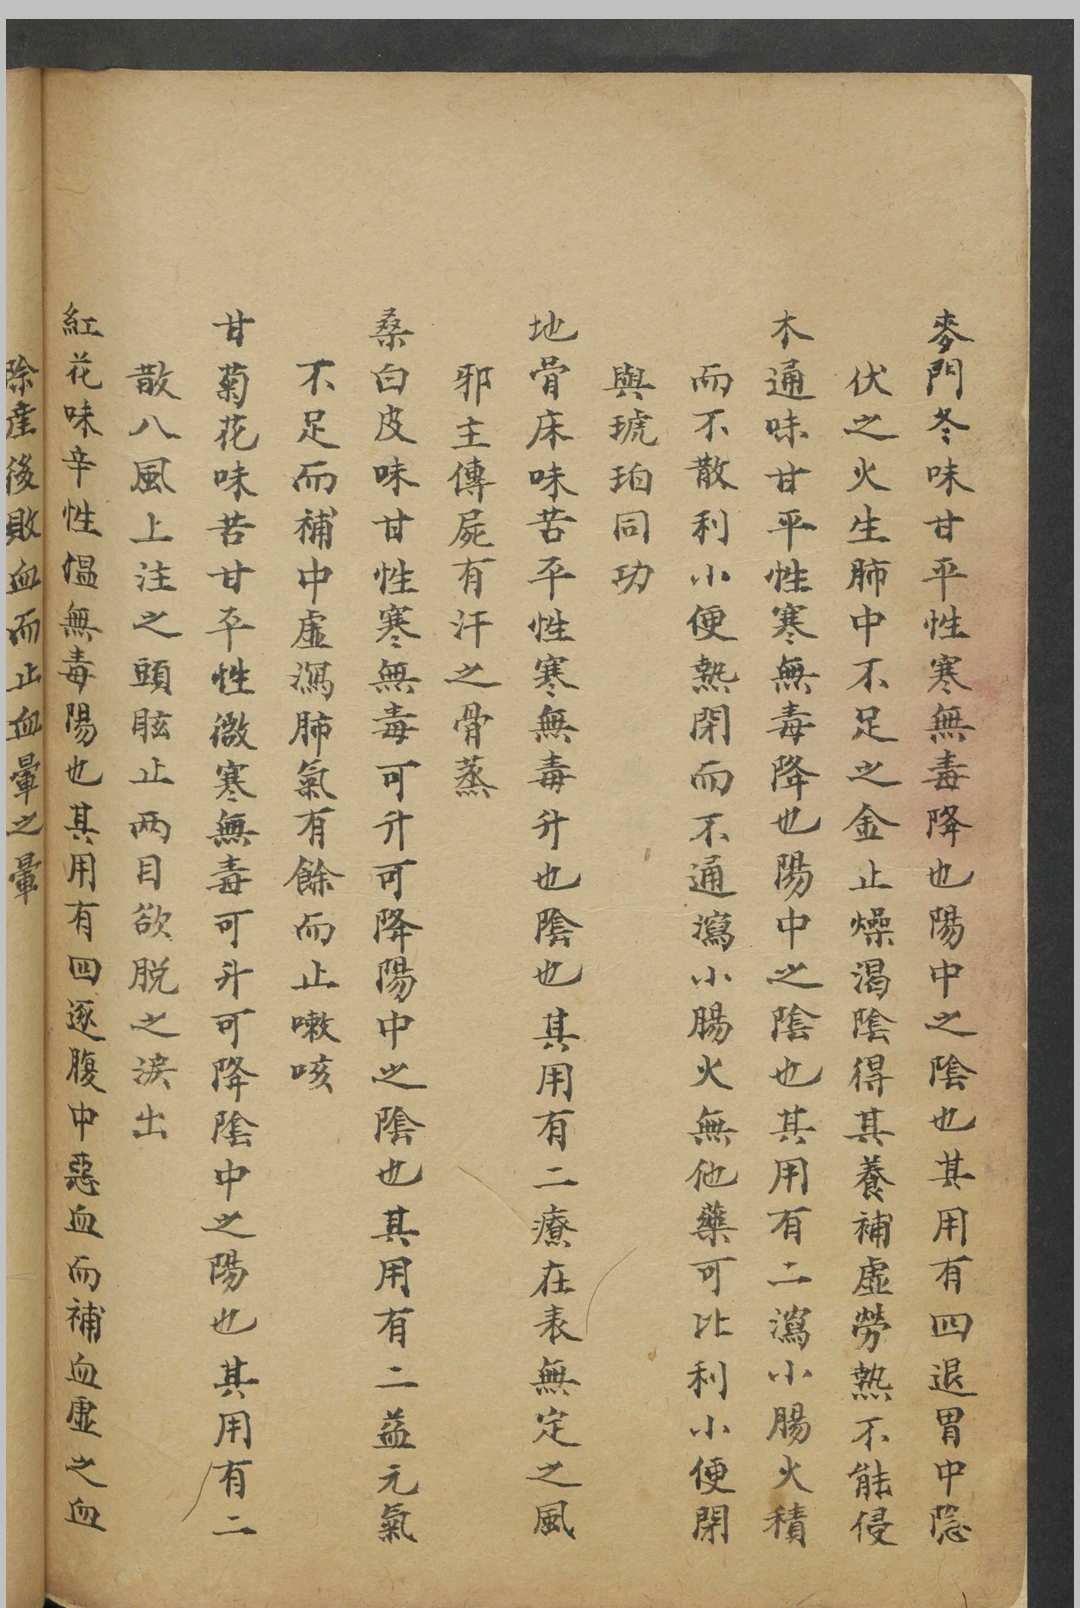 麥門冬味甘平性寒無毒降也陽中之陰也其用有四退胃中隐
伏之火生肺中不足之金止燥渴陰得其養補虛勞熱不能侵
木通味甘平性寒無毒降也陽中之陰也其用有二瀉小腸火積
而不散利小便熱閉而不通瀉小腸火無他藥可比利小便閉
與琥珀同功
地骨床味苦平性寒無毒升也陰也其用有二療在表無定之風
邪主傳屍有汗之骨蒸
桑白皮味甘性寒無毒可升可降陽中之陰也其用有二益元氣
不足而補中虛瀉肺氣有餘而止嗽咳
甘菊花味苦甘平性微寒無毒可升可降陰中之陽也其用有二
散八風上注之頭眩止两目欲脱之淚出
紅花味辛性愠無毒陽也其用有四逐腹中惡血而補血虛之血
除産後敗血而止血暈之暈